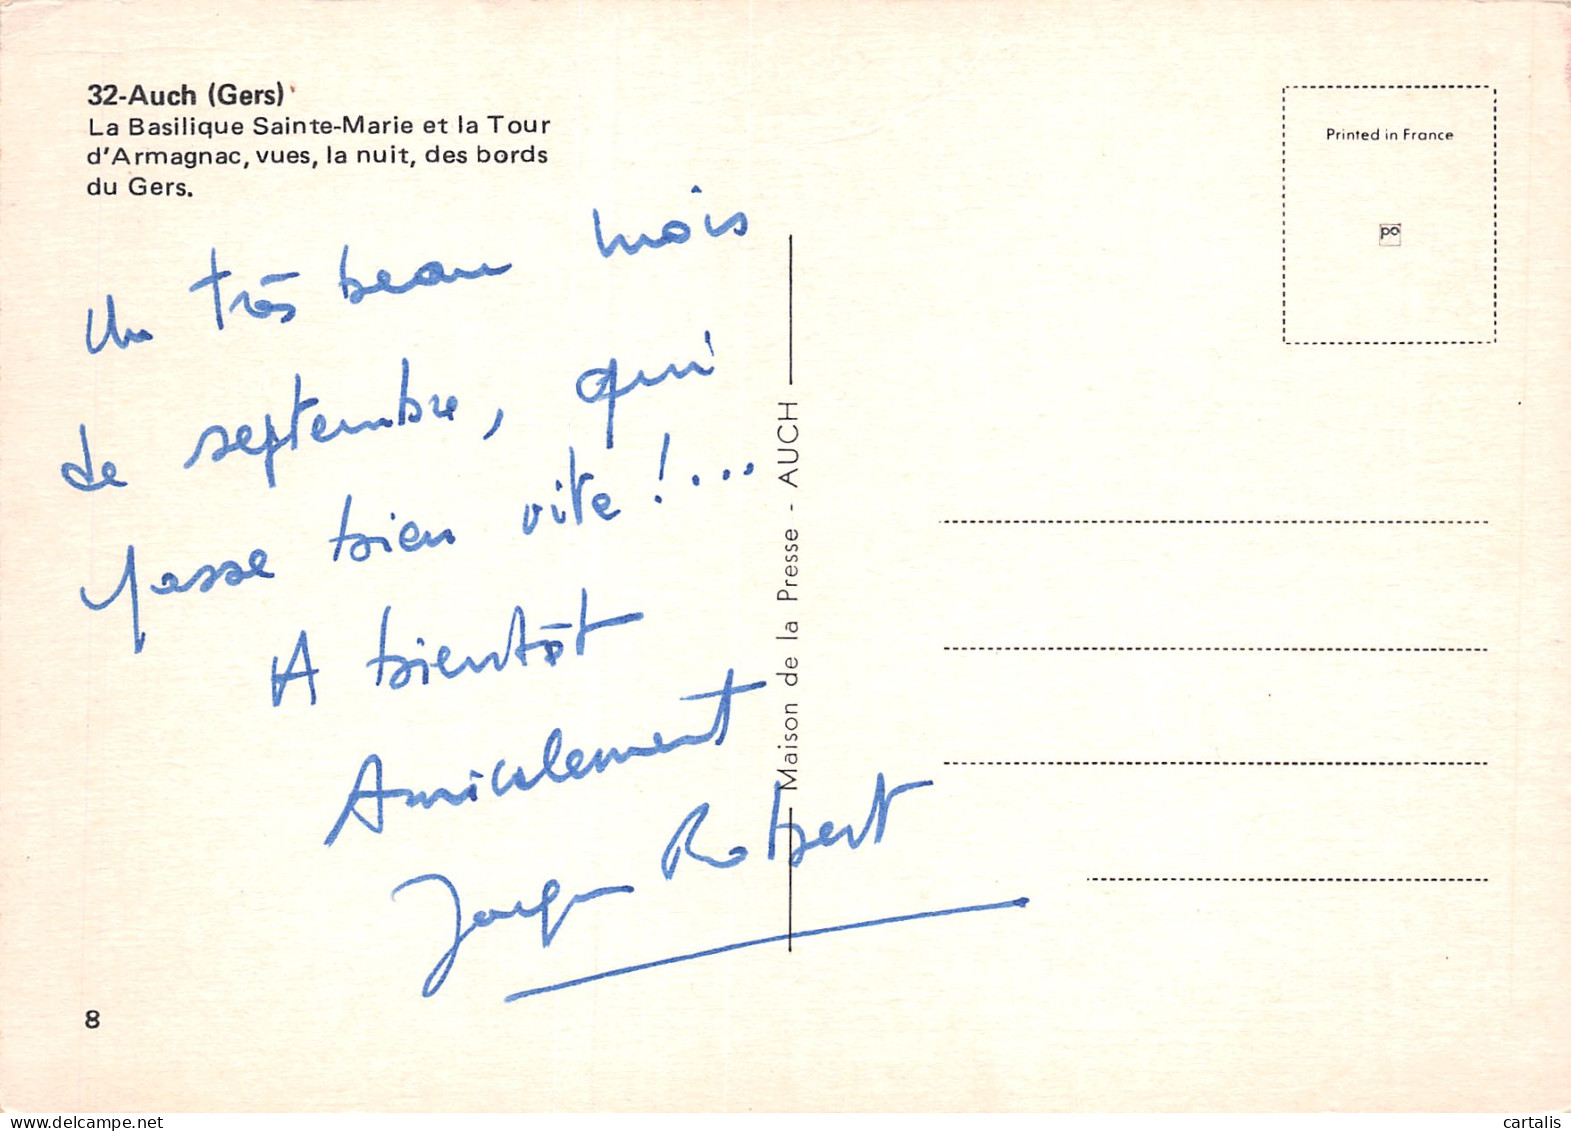 32-Auch (Gers)
La Basilique Sainte-Marie et la Tour
d'Armagnac, vues, la nuit, des bords
du Gers.
Un très beau mois
de septembre, qui
passe bien vite !...
A bientôt
Amicalement
Jacques Robert
Maison de la Presse - AUCH
Printed in France
po
8
delcampe.net
cartalis